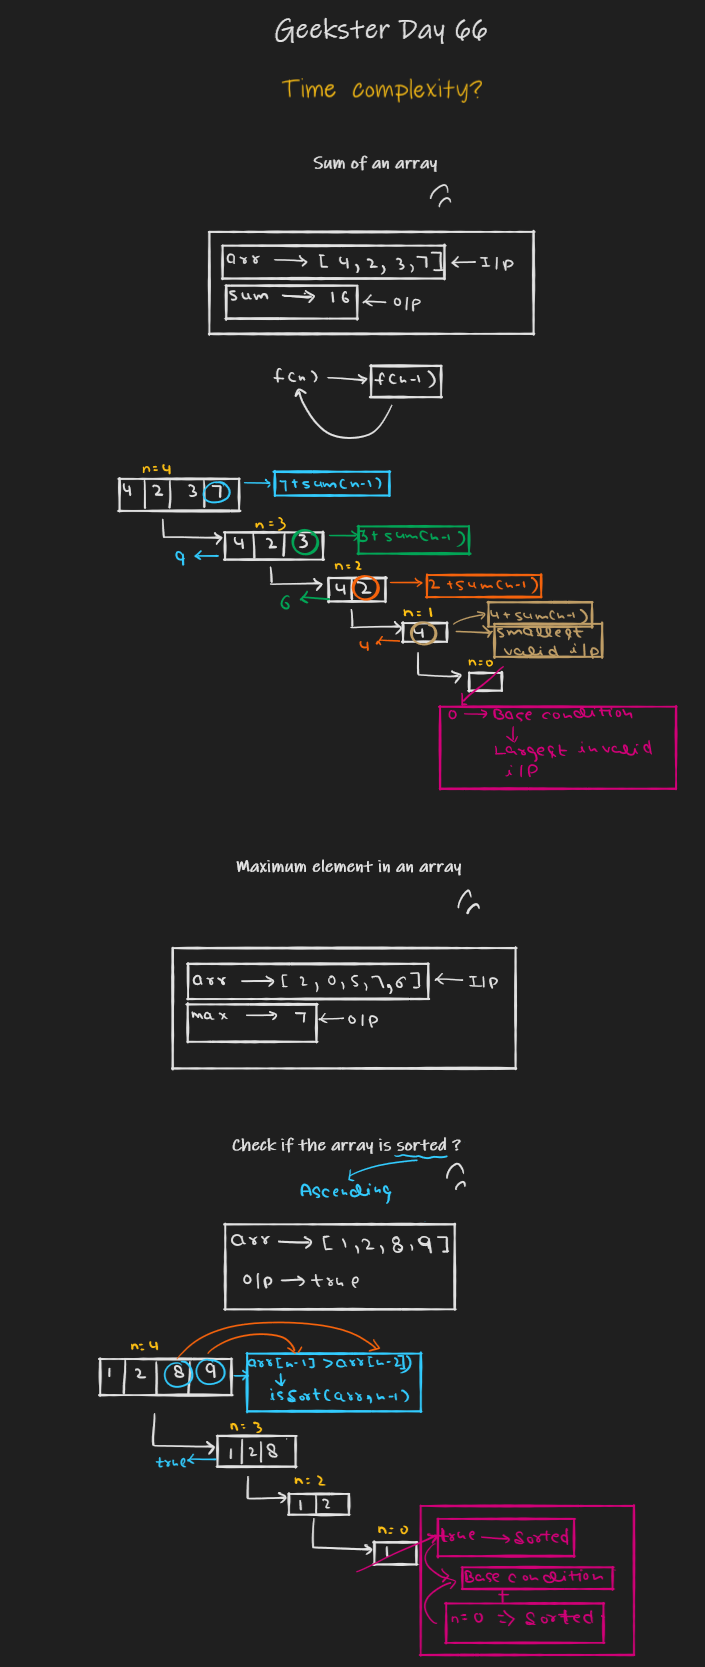 Geekster Day 66
Time complexity?
Sum of an array
arr → [ 4, 2, 3, 7] ← I/P
sum → 16 ← O/P
f(n) → f(n-1)
n=4
4 2 3 7 → 7+sum(n-1)
n=3
4 2 3 → 3+sum(n-1)
9 ←
n=2
4 2 → 2+sum(n-1)
6 ←
n=1
4 → 4+sum(n-1)
→ smallest
valid i/p
4 ←
n=0
0 → Base condition
↓
Largest invalid
i/p
Maximum element in an array
arr → [ 2, 0, 5, 7, 6 ] ← I/P
max → 7 ← O/P
Check if the array is sorted ?
Ascending
arr → [ 1, 2, 8, 9 ]
O/P → true
n=4
1 2 8 9 → arr[n-1] > arr[n-2])
↓
isSort(arr, n-1)
n=3
1 2 8
true ←
n=2
1 2
n=0
1
true → Sorted
Base condition
+
n=0 => Sorted